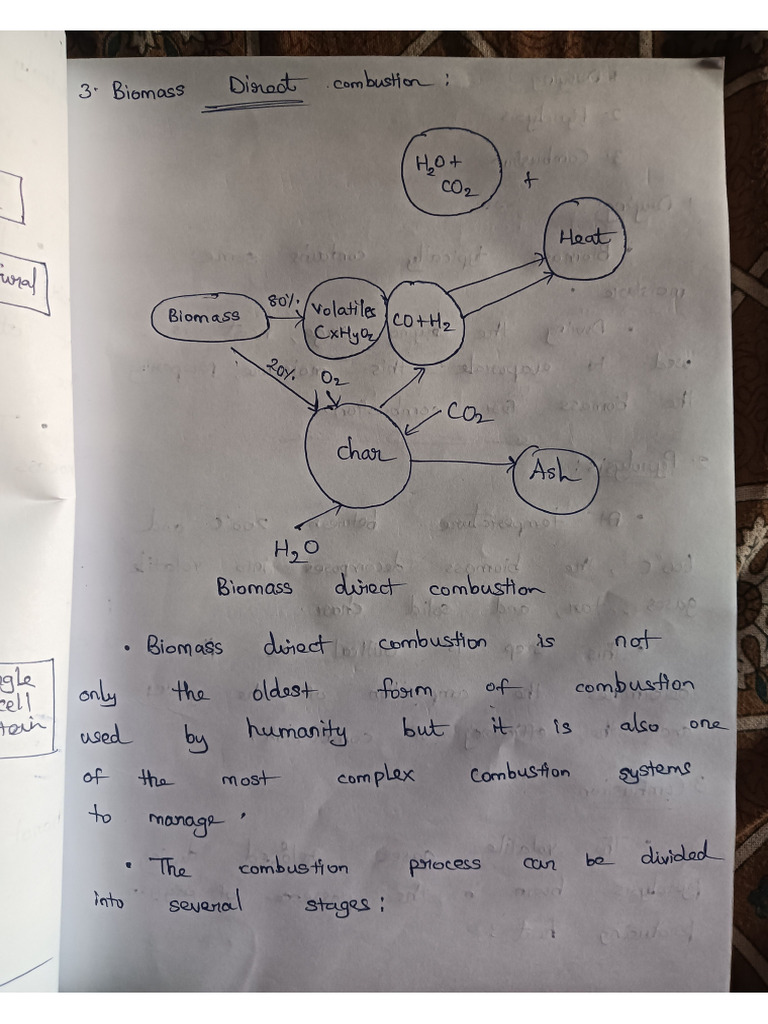 3. Biomass Direct combustion :
H2O +
CO2
+
Heat
80%.
Volatiles
CxHyO2
CO+H2
Biomass
20%.
O2
CO2
char
Ash
H2O
Biomass direct combustion
• Biomass direct combustion is not
only the oldest form of combustion
used by humanity but it is also one
of the most complex combustion systems
to manage.
• The combustion process can be divided
into several stages:
cell